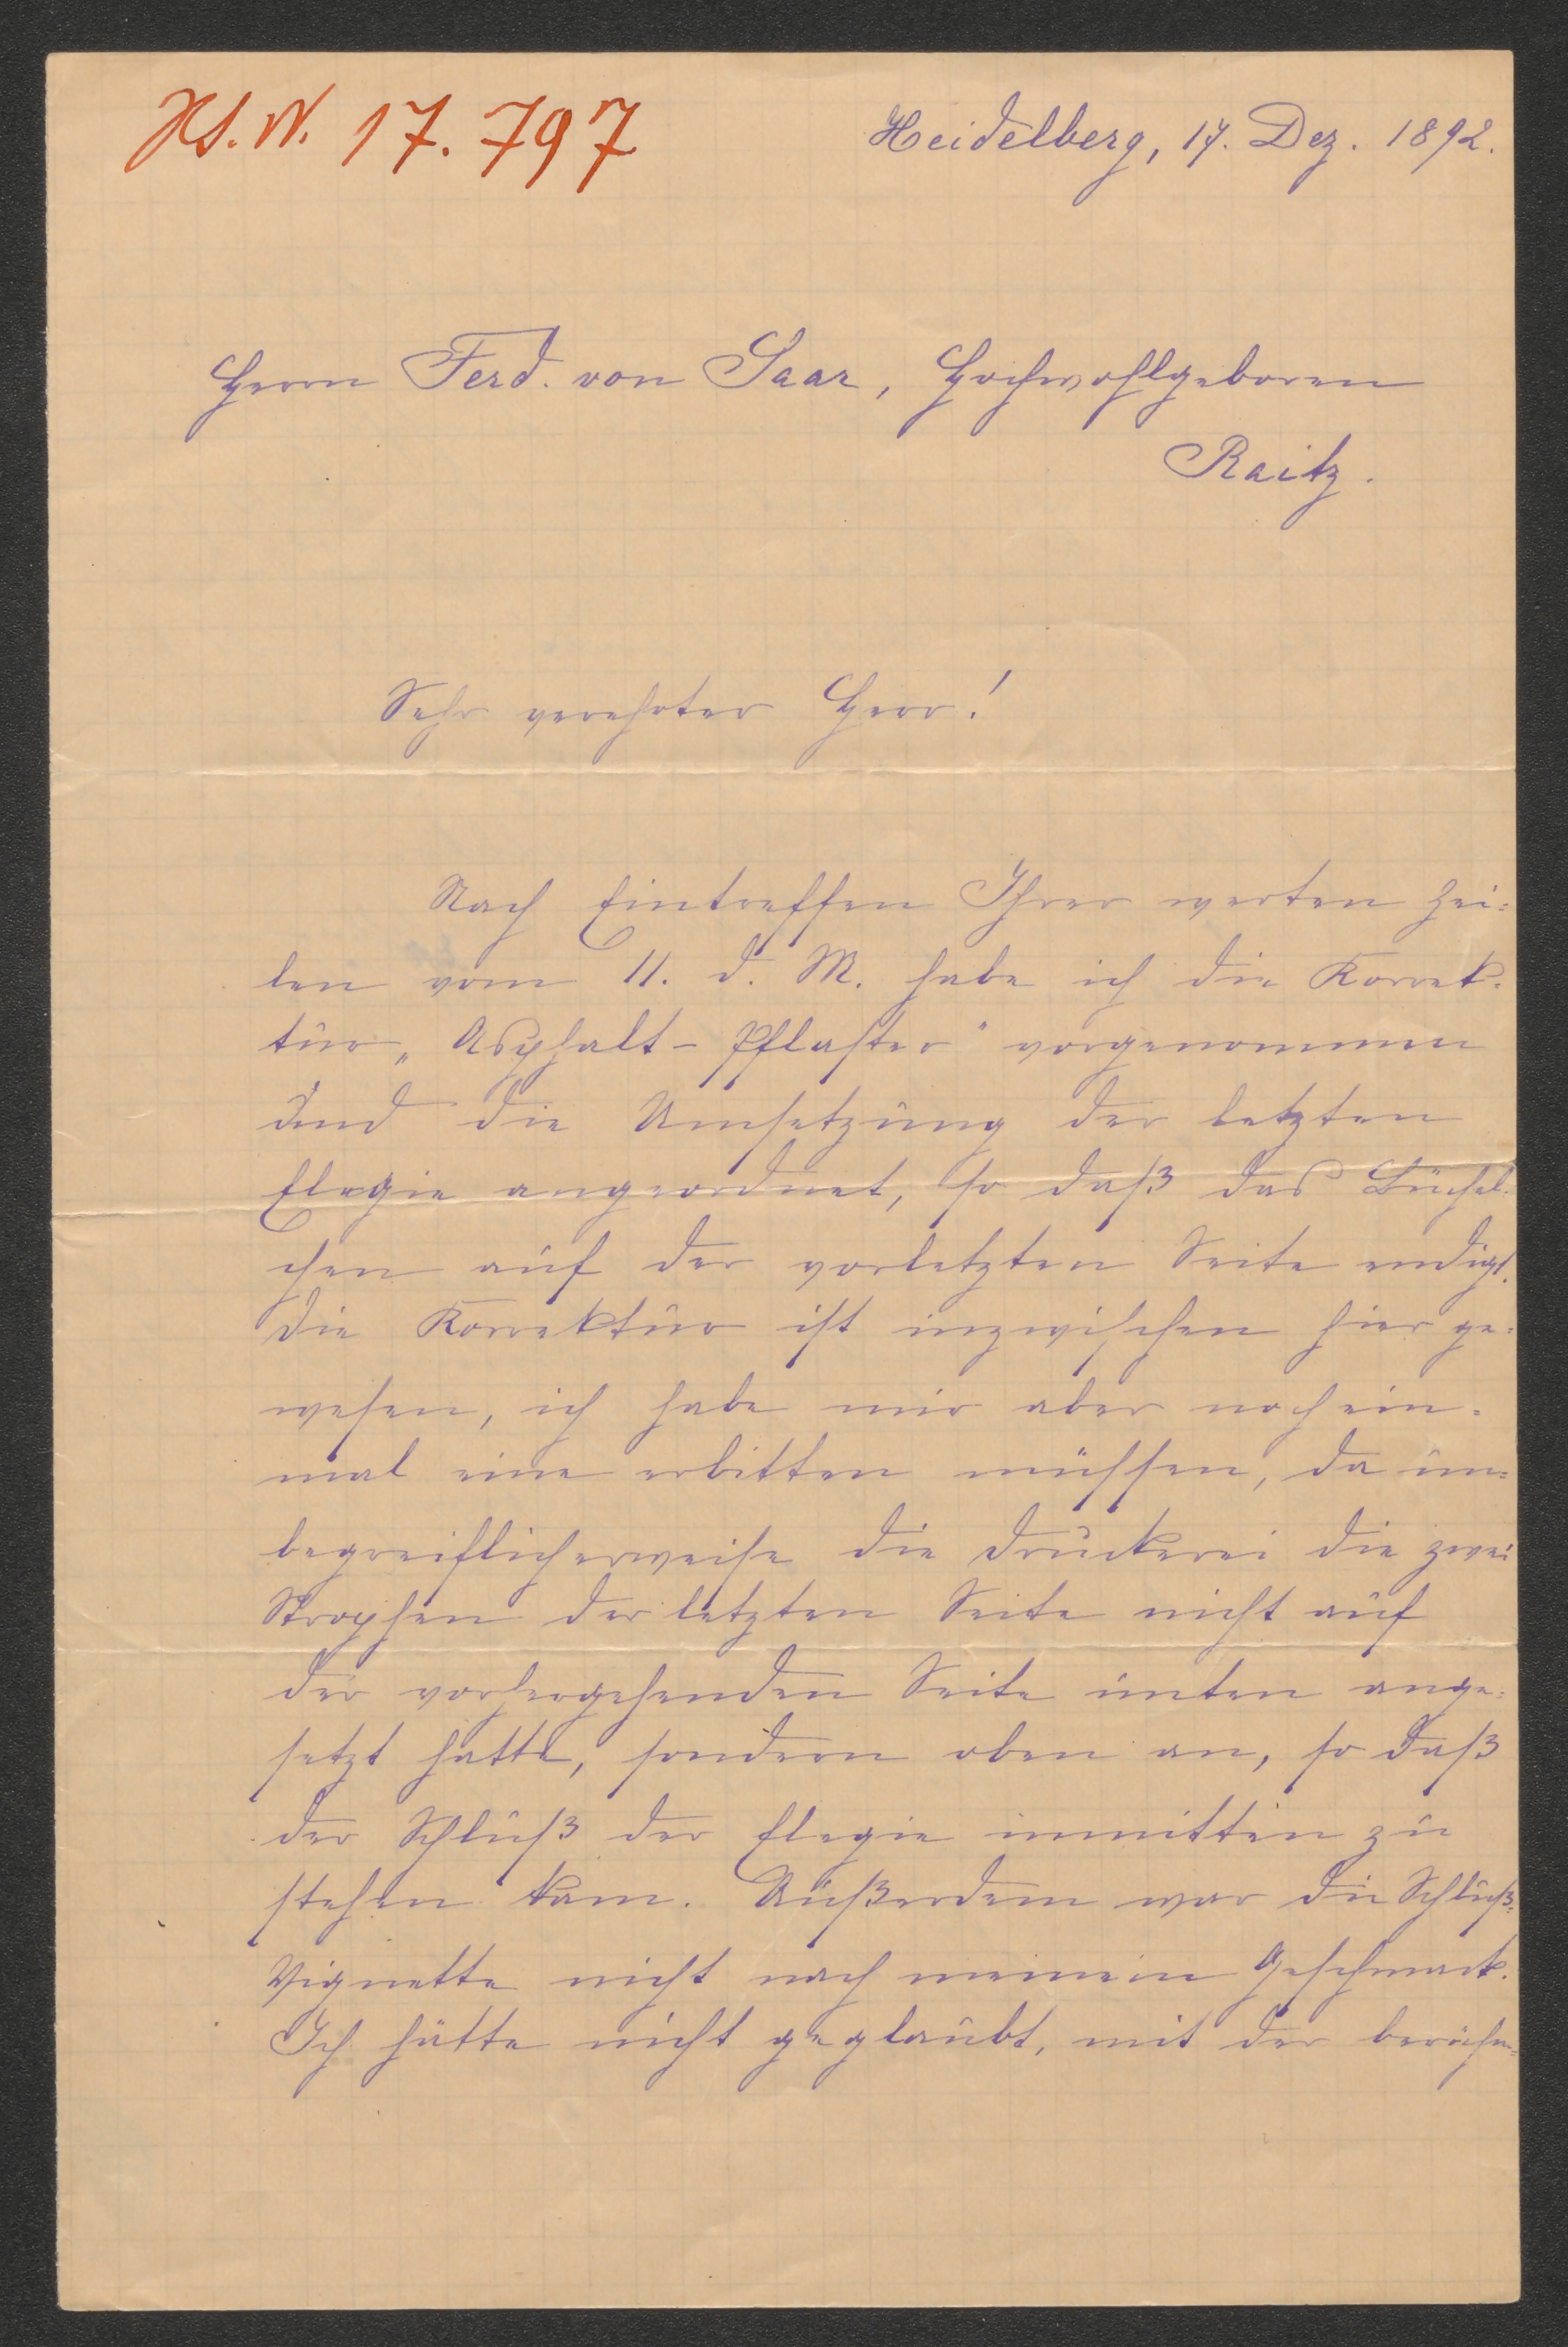 Hs. N. 17.797
Heidelberg, 17. Dez. 1892.
Herrn Ferd. von Saar, Hochwohlgeboren
Raitz.
Sehr verehrter Herr!
Nach Eintreffen Ihrer werten Zei-
len vom 11. d. M. habe ich die Korrek-
tur „Asphalt-Pflaster" vorgenommen
und die Umsetzung der letzten
Elegie angeordnet, so daß das Büchel-
chen auf der vorletzten Seite endigt.
Die Korrektur ist inzwischen hier ge-
wesen, ich habe mir aber noch ein-
mal eine erbitten müssen, da un-
begreiflicherweise die Druckerei die zwei
Strophen der letzten Seite nicht auf
der vorhergehenden Seite unten ange-
setzt hatte, sondern oben an, so daß
der Schluß der Elegie inmitten zu
stehen kam. Außerdem war die Schluß-
Vignette nicht nach meinem Geschmack.
Ich hätte nicht geglaubt, mit der berühm-